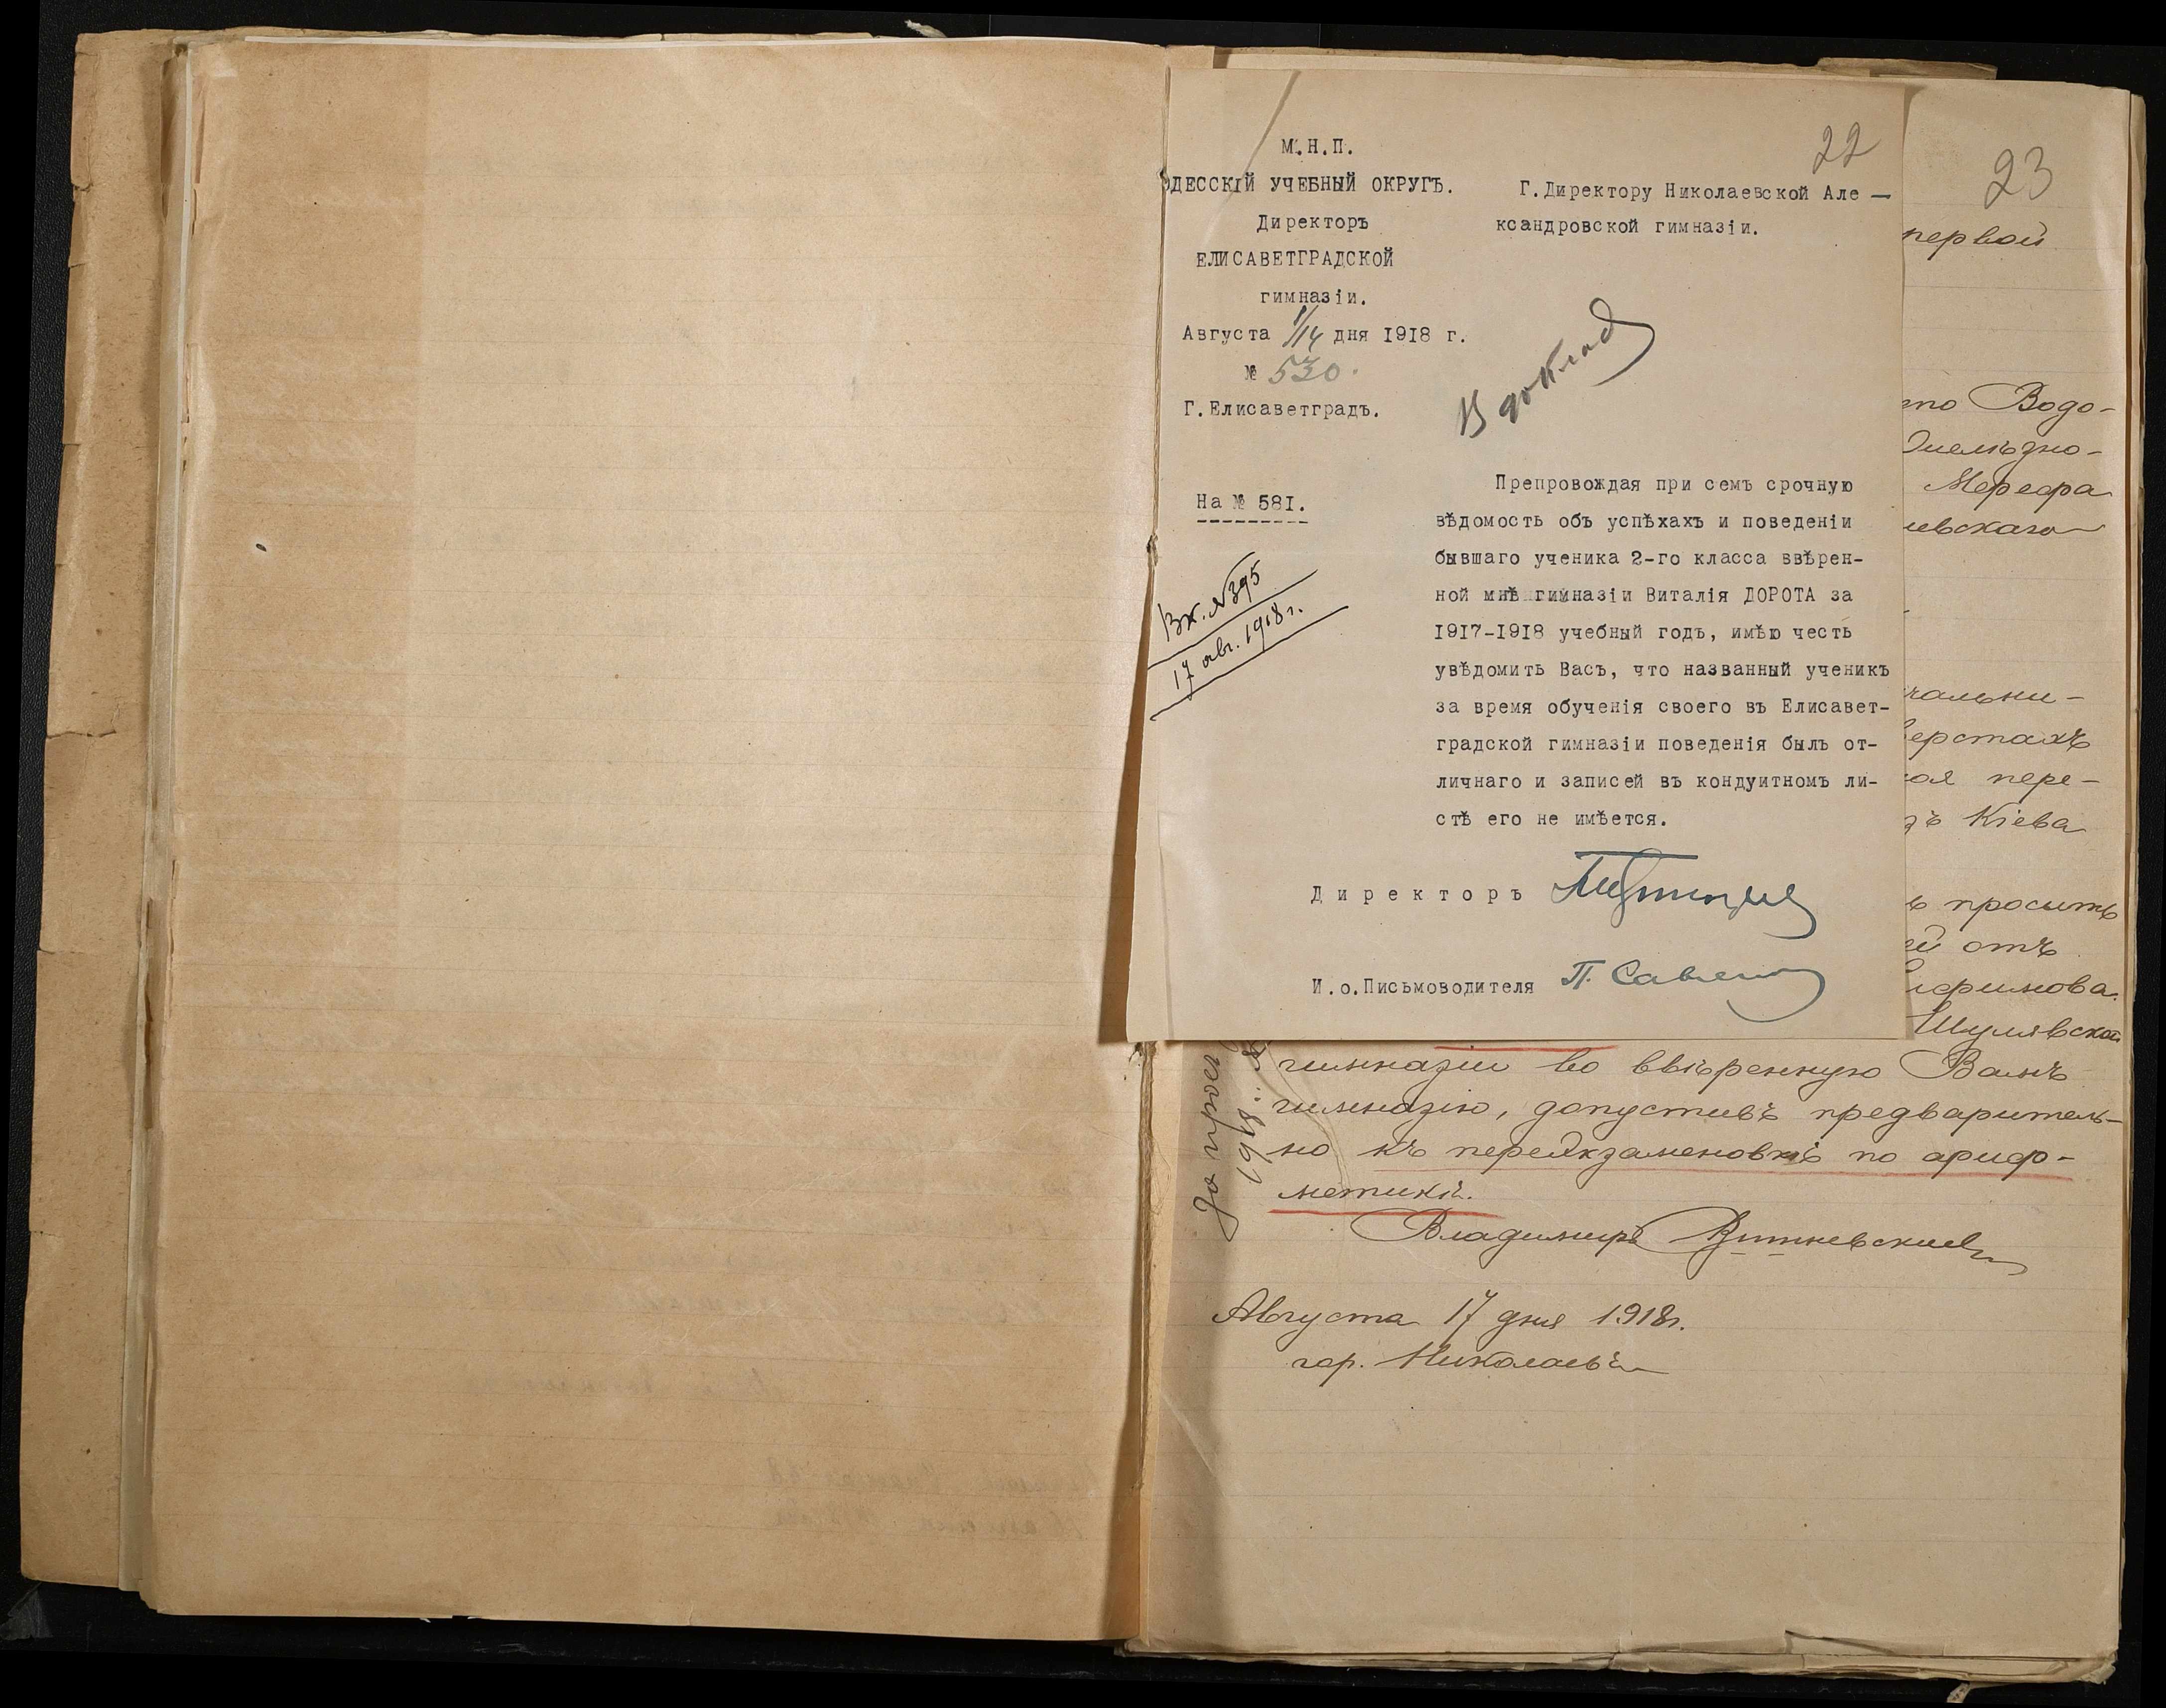 22
М.Н.П.
ОДЕССКІЙ УЧЕБНЫЙ ОКРУГЪ.
Директоръ
ЕЛИСАВЕТГРАДСКОЙ
гимназіи.
Августа 1/14 дня 1918 г.
№ 530.
Г.Елисаветградъ.
На № 581.
Вх. №395
17 авг. 1918 г.
Г.Директору Николаевской Але—
ксандровской гимназіи.
В доклад
Препровождая при семъ срочную
вѣдомость объ успѣхахъ и поведеніи
бывшаго ученика 2-го класса ввѣрен-
ной мнѣ гимназіи Виталія ДОРОТА за
1917-1918 учебный годъ, имѣю честь
увѣдомить Васъ, что названный ученикъ
за время обученія своего въ Елисавет-
градской гимназіи поведенія былъ от-
личнаго и записей въ кондуитномъ ли-
стѣ его не имѣется.
Директоръ
И.о.Письмоводителя П.
23
первой
Водо-
Мерефа
верстахъ
пере-
Кіева
просить
отъ
Шулявской
гимназіи во ввѣренную Вамъ
гимназію, допустивъ предваритель-
но къ переэкзаменовкѣ по ариф-
метикѣ.
Владимиръ
Августа 17 дня 1918г.
гор. Николаевъ